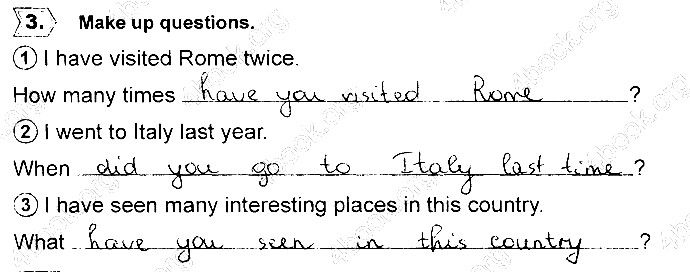 3. Make up questions.
① I have visited Rome twice.
How many times have you visited Rome ?
② I went to Italy last year.
When did you go to Italy last time ?
③ I have seen many interesting places in this country.
What have you seen in this country ?
4book.org
4book.org
4book.org
4book.org